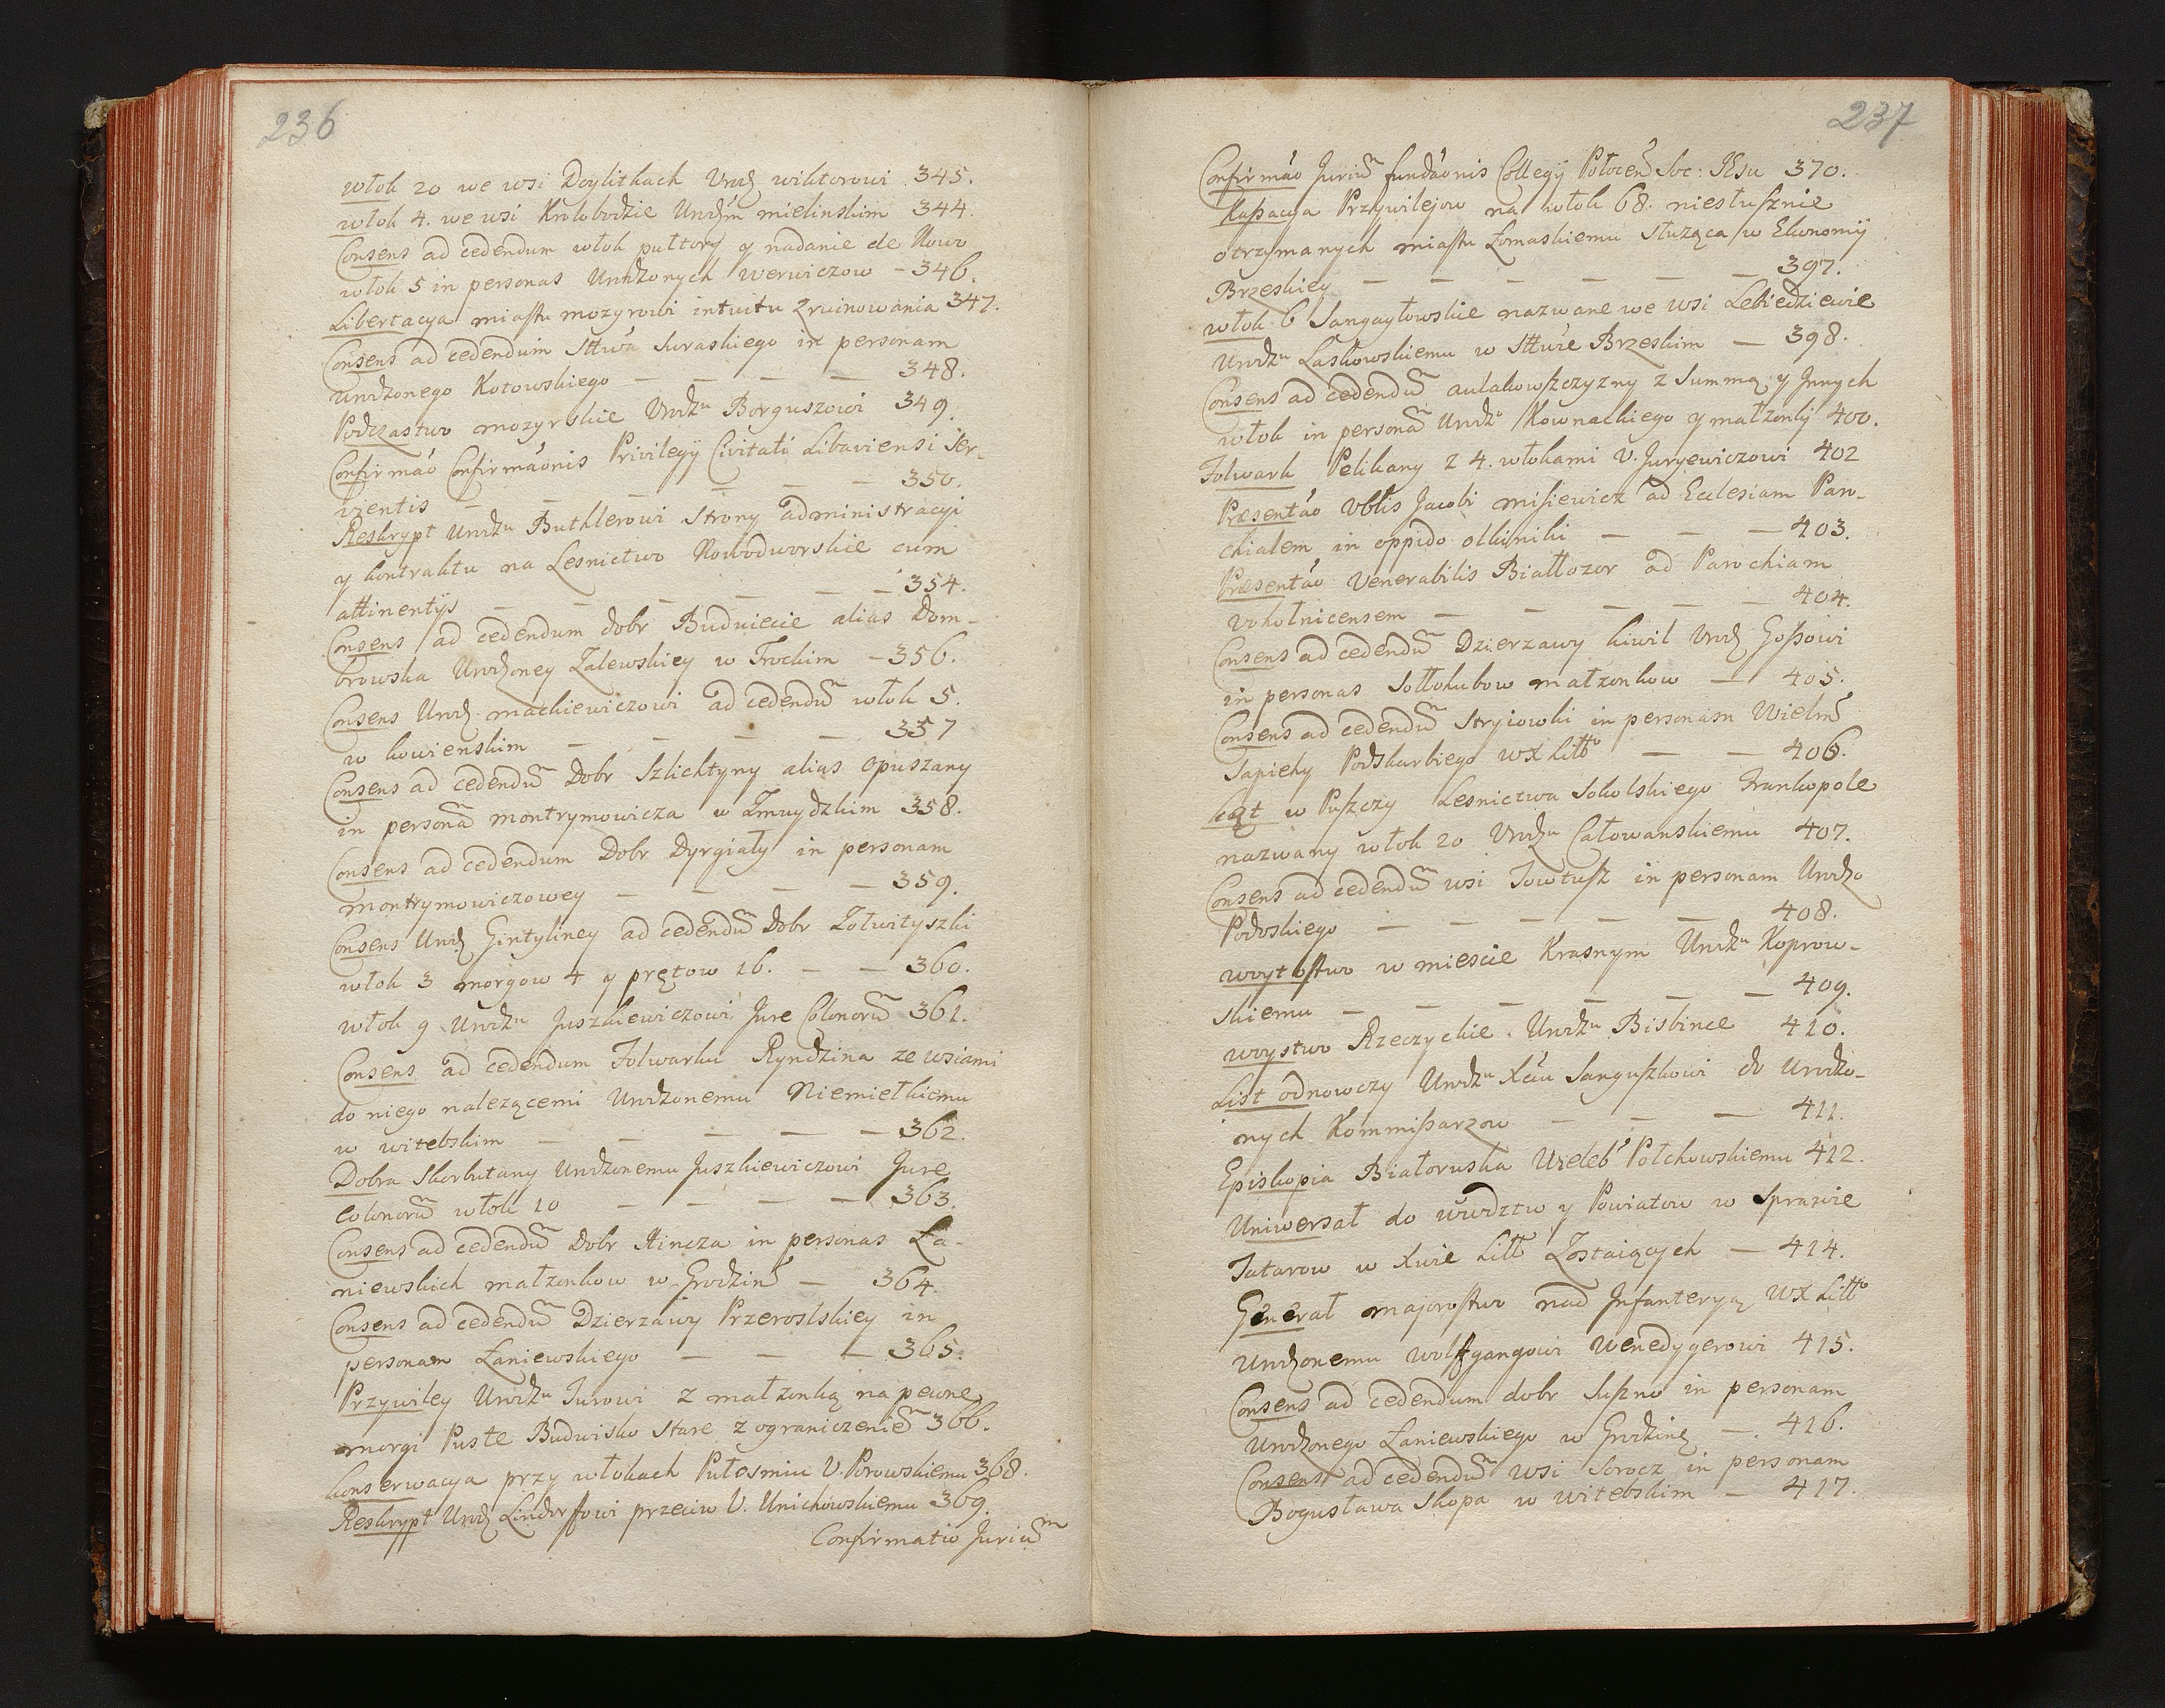 236
włok 20 we wsi Doylitkach Urodz wiktorowi 345.
włok 4. we wsi Krolobodzie Urodzm mielinskim 344.
Consens ad cedendum włok pułtory y nadanie de Nowo
włok 5 in personas Urodzonych werwiczow – 346.
Libertacya miastu mozyrowi intuitu Zruinowania 347.
Consens ad cedendum Sttwa Suraskiego in personam
urodzonego Kotowskiego — — — — 348.
Podczastwo mozyrskie Urodzu Borguszowi 349.
Confirmao Confirmaonis Privilegij Civitati Libaviensi Ser-
vientis — — — — — 350.
Reskrypt Urodzu Buthlerowi Strony administracyi
y kontraktu na Lesnictwo Nowodworskie cum
attinentijs — — — — — 354.
Consens ad cedendum dobr Budwiecie alias Dom-
browska Urodzoney Zalewskiey w Trockim – 356.
Consens Urodz. mackiewiczowi ad cedendu włok 5.
w kowienskim — — — — 357
Consens ad cedendu Dobr Szlichtyny alias Opuszany
in persona montrymowicza w Zmuydzkim 358.
Consens ad cedendum Dobr Dyrgiały in personam
montrymowiczowey — — — — 359.
Consens Urodz Gintyliney ad cedendu Dobr Zołwityszki
włok 3 morgow 4 y prętow 16. — — 360.
włok 9 Urodzu Juszkiewiczowi Jure Colonoru 361.
Consens ad cedendum Folwarku Ryndzina ze wsiami
do niego nalezącemi Urodzonemu Niemietkiemu
w witebskim — — — — — 362.
Dobra Skorbutany Urodzonemu Juszkiewiczowi Jure
colonoru włok 10 — — — — 363.
Consens ad cedendu Dobr Hincza in personas Ła-
niewskich małzonkow w Grodzin — 364.
Consens ad cedendu Dzierzawy Przerostskiey in
personam Łaniewskiego — — — 365.
Przywiley Urodzu Turowi z małzonką na pewne
morgi Puste Budwisko Stare z ograniczenie 366.
konserwacya przy włokach Putosmiu U. Porowskiemu 368.
Reskrypt Urodz Lindorffowi przeciw U. Unichowskiemu 369.
Confirmatio Jurium
237
Confirmao Juriu fundaonis Collegij Połocen Soc: JEsu 370.
Kassacya Przywilejow na włok 68. niesłusznie
otrzymanych miastu Łomaskiemu służąca w Ekonomij
Brzeskiey — — — — — — 397.
włok 6 Sangayłowskie nazwane we wsi Lebiedziewie
Urodzu Laskowskiemu w Sttwie Brzeskim — 398.
Consens ad cedendu aulakowszczyzny z Summą y Innych
włok in persona Urodzo Kownackiego y małzonki 400.
Folwark Pelikany z 4. włokami U. Juryewiczowi 402
Præsentao Vblis Jacobi misiewicz ad Ecclesiam Paro-
chialem in oppido olkiniki — — — 403.
Præsentao Venerabilis Białłozor ad Parochiam
wokolnicensem — — — — — 404.
Consens ad cedendu Dzierzawy kiwil Urodz Gossowi
in personas Sołłohubow małzonkow — 405.
Consens ad cedendu Stryiowki in personam Wielm
Sapiehy Podskarbiego WX Litto — — 406.
kąt w Puszczy Lesnictwa Sokolskiego Frankopole
nazwany włok 20 Urodzu Całowanskiemu 407.
Consens ad cedendu wsi Towtusz in personam Urodzo
Podoskiego — — — — — 408.
woytostwo w miescie Krasnym Urodzu Koprow-
skiemu — — — — — — 409.
woystwo Rzeczyckie Urodzu Bisbince 410.
List odnowczy Urodzu Xciu Sanguszkowi do Urodzo-
nych Kommissarzow — — — 411.
Episkopia Białoruska Wieleb Połchowskiemu 412.
Uniwersał do wwdztw y Powiatow w Sprawie
Tatarow w Xwie Litt Zostaiących — 414.
Generał majorostwo nad Infanteryą WX Litto
Urodzonemu wolffgangowi Wenedygerowi 415.
Consens ad cedendum dobr Suszno in personam
Urodzonego Łaniewskiego w Grodzinę — 416.
Consens ad cedendu wsi Sorocz in personam
Bogusława Skopa w witebskim — 417.